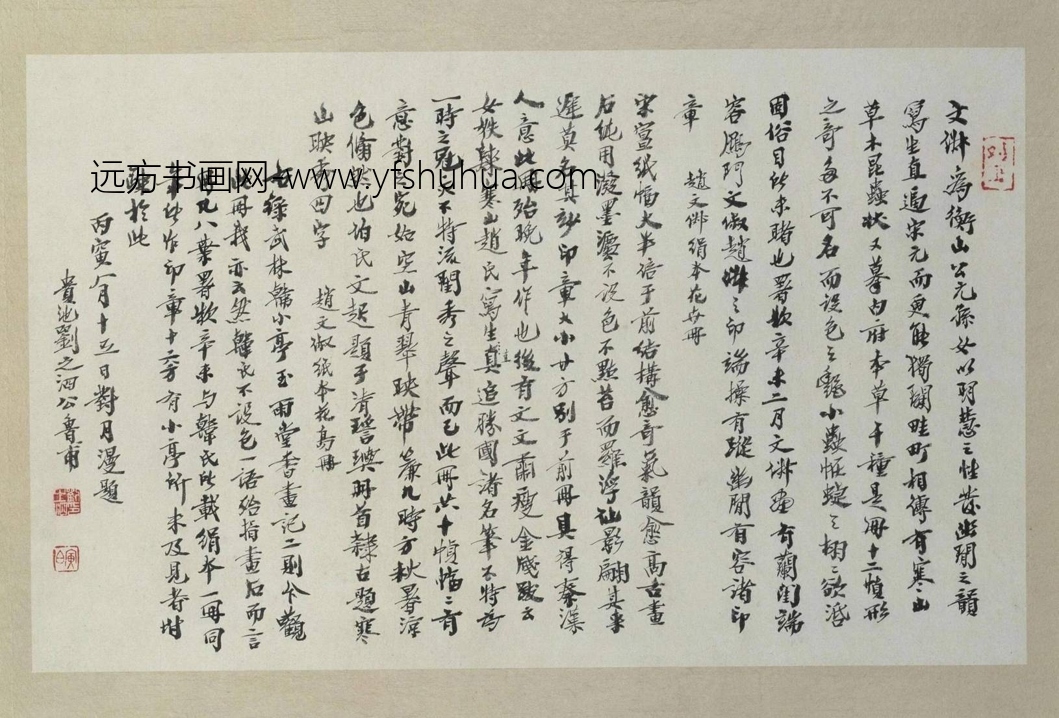 文俶為衡山公元孫女以明慧之性發幽閒之韻
寫生直逼宋元而更能獨闢畦町相傳有寒山
草木昆蟲狀又摹內府本草千種是冊十二幀形
之奇多不可名而設色之豔小蟲怪蜨之栩栩欲活
固俗目所未睹也署款辛未二月文俶畫
容鴈門文淑趙俶之印端操有蹤幽閒有容諸印
章 趙文俶絹本花卉冊
宋箋紙幅大半倍于前結構愈奇氣韻愈高古畫
石純用潑墨瀋不設色不點苔而羅浮仙影翩其來
遲莫名其妙印章大小廿方別于前冊具得秦漢
人意此冊殆晚年作也後有文文肅瘦金咸跋云
女姪歸寒山趙氏寫生真追勝國諸名筆不特為
一時之冠又不特流閨秀之聲而已此冊共十幀幅二有
意對宛如空山青翠映帶簾几時方秋暑涼
色翛然也伯氏文起題于清瑤璵冊首隸古題寒
山映雪四字 趙文淑紙本花鳥冊
錄武林韓小亭玉雨堂書畫記二則今觀
此冊我亦云然韓氏不設色一語殆指畫石而言
此冊凡八葉署款辛未与韓氏所載絹本一冊同
年所作印章十六方有小亭所未及見者附
識於此
丙寅八月十五日對月漫題
貴池劉之泗公魯甫
远方书画网-www.yfshuhua.com